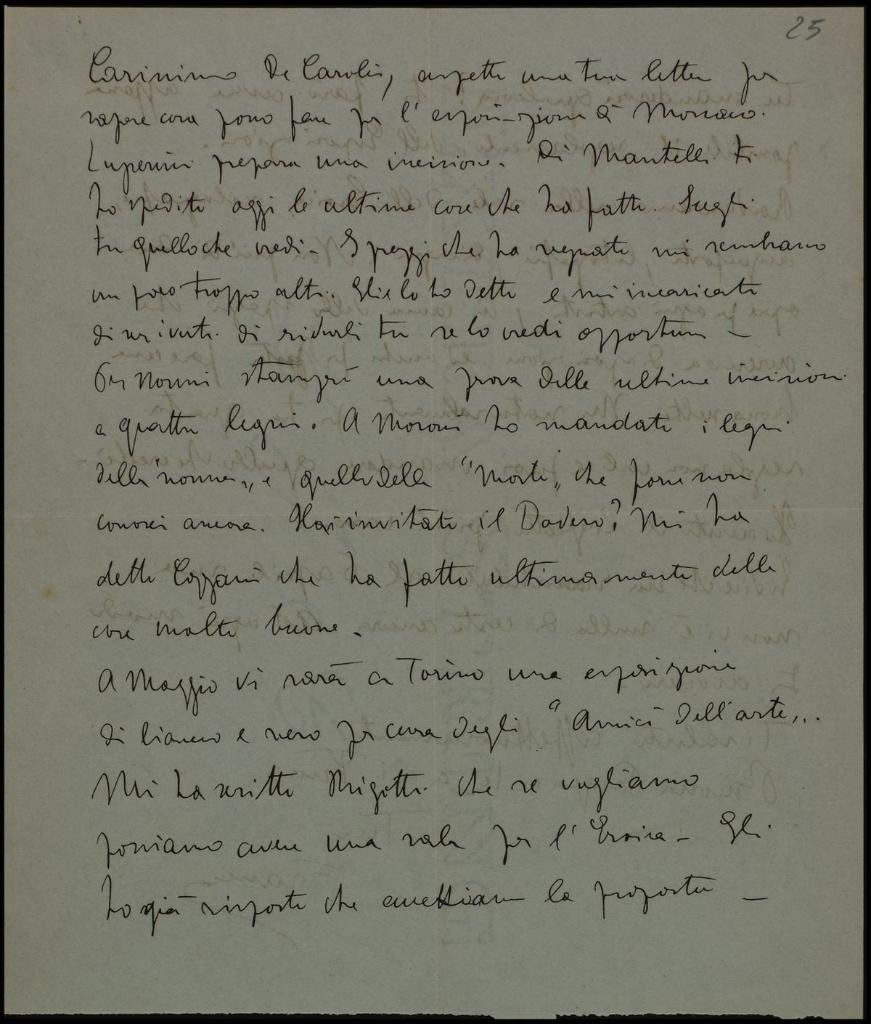 25
Carissimo De Carolis, aspetto una tua lettera per
sapere cosa posso fare per l'esposizione di Monaco.
Luperini prepara una incisione. Di Mantelli ti
ho spedito oggi le ultime cose che ha fatto. Scegli
tu quello che credi - I prezzi che ha segnati mi sembrano
un poco troppo alti. Glielo ho detto e mi incaricato
di scriverti di ridurli tu se lo credi opportuno -
Per Nonni stamperò una prova delle ultime incisioni
a quattro legni. A Moroni ho mandato i legni
della "nonna" e quello della "Morte" che forse non
conosci ancora. Hai invitato il Dodero? Mi ha
detto Cozzani che ha fatto ultimamente delle
cose molto buone.
A Maggio vi sarà a Torino una esposizione
di bianco e nero per cura degli "Amici dell'arte"..
Mi ha scritto Rigotti che se vogliamo
possiamo avere una sala per l'Eroica - Gli
ho già risposto che accettiamo la proposta -